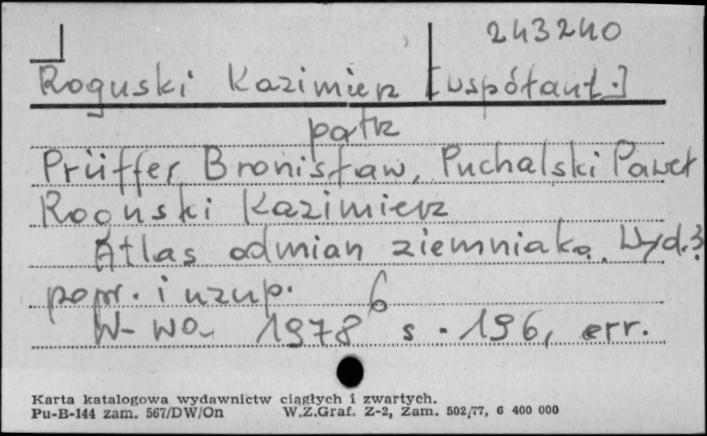 243240
Roguski Kazimierz [współaut.]
patrz
Prüffer Bronisław, Puchalski Paweł
Roguski Kazimierz
Atlas odmian ziemniaka. Wyd. 3
popr. i uzup. 6
W-wa 1978 s. 196, err.
Karta katalogowa wydawnictw ciągłych i zwartych.
Pu-B-144 zam. 567/DW/On W.Z.Graf. Z-2, Zam. 502/77, 6 400 000